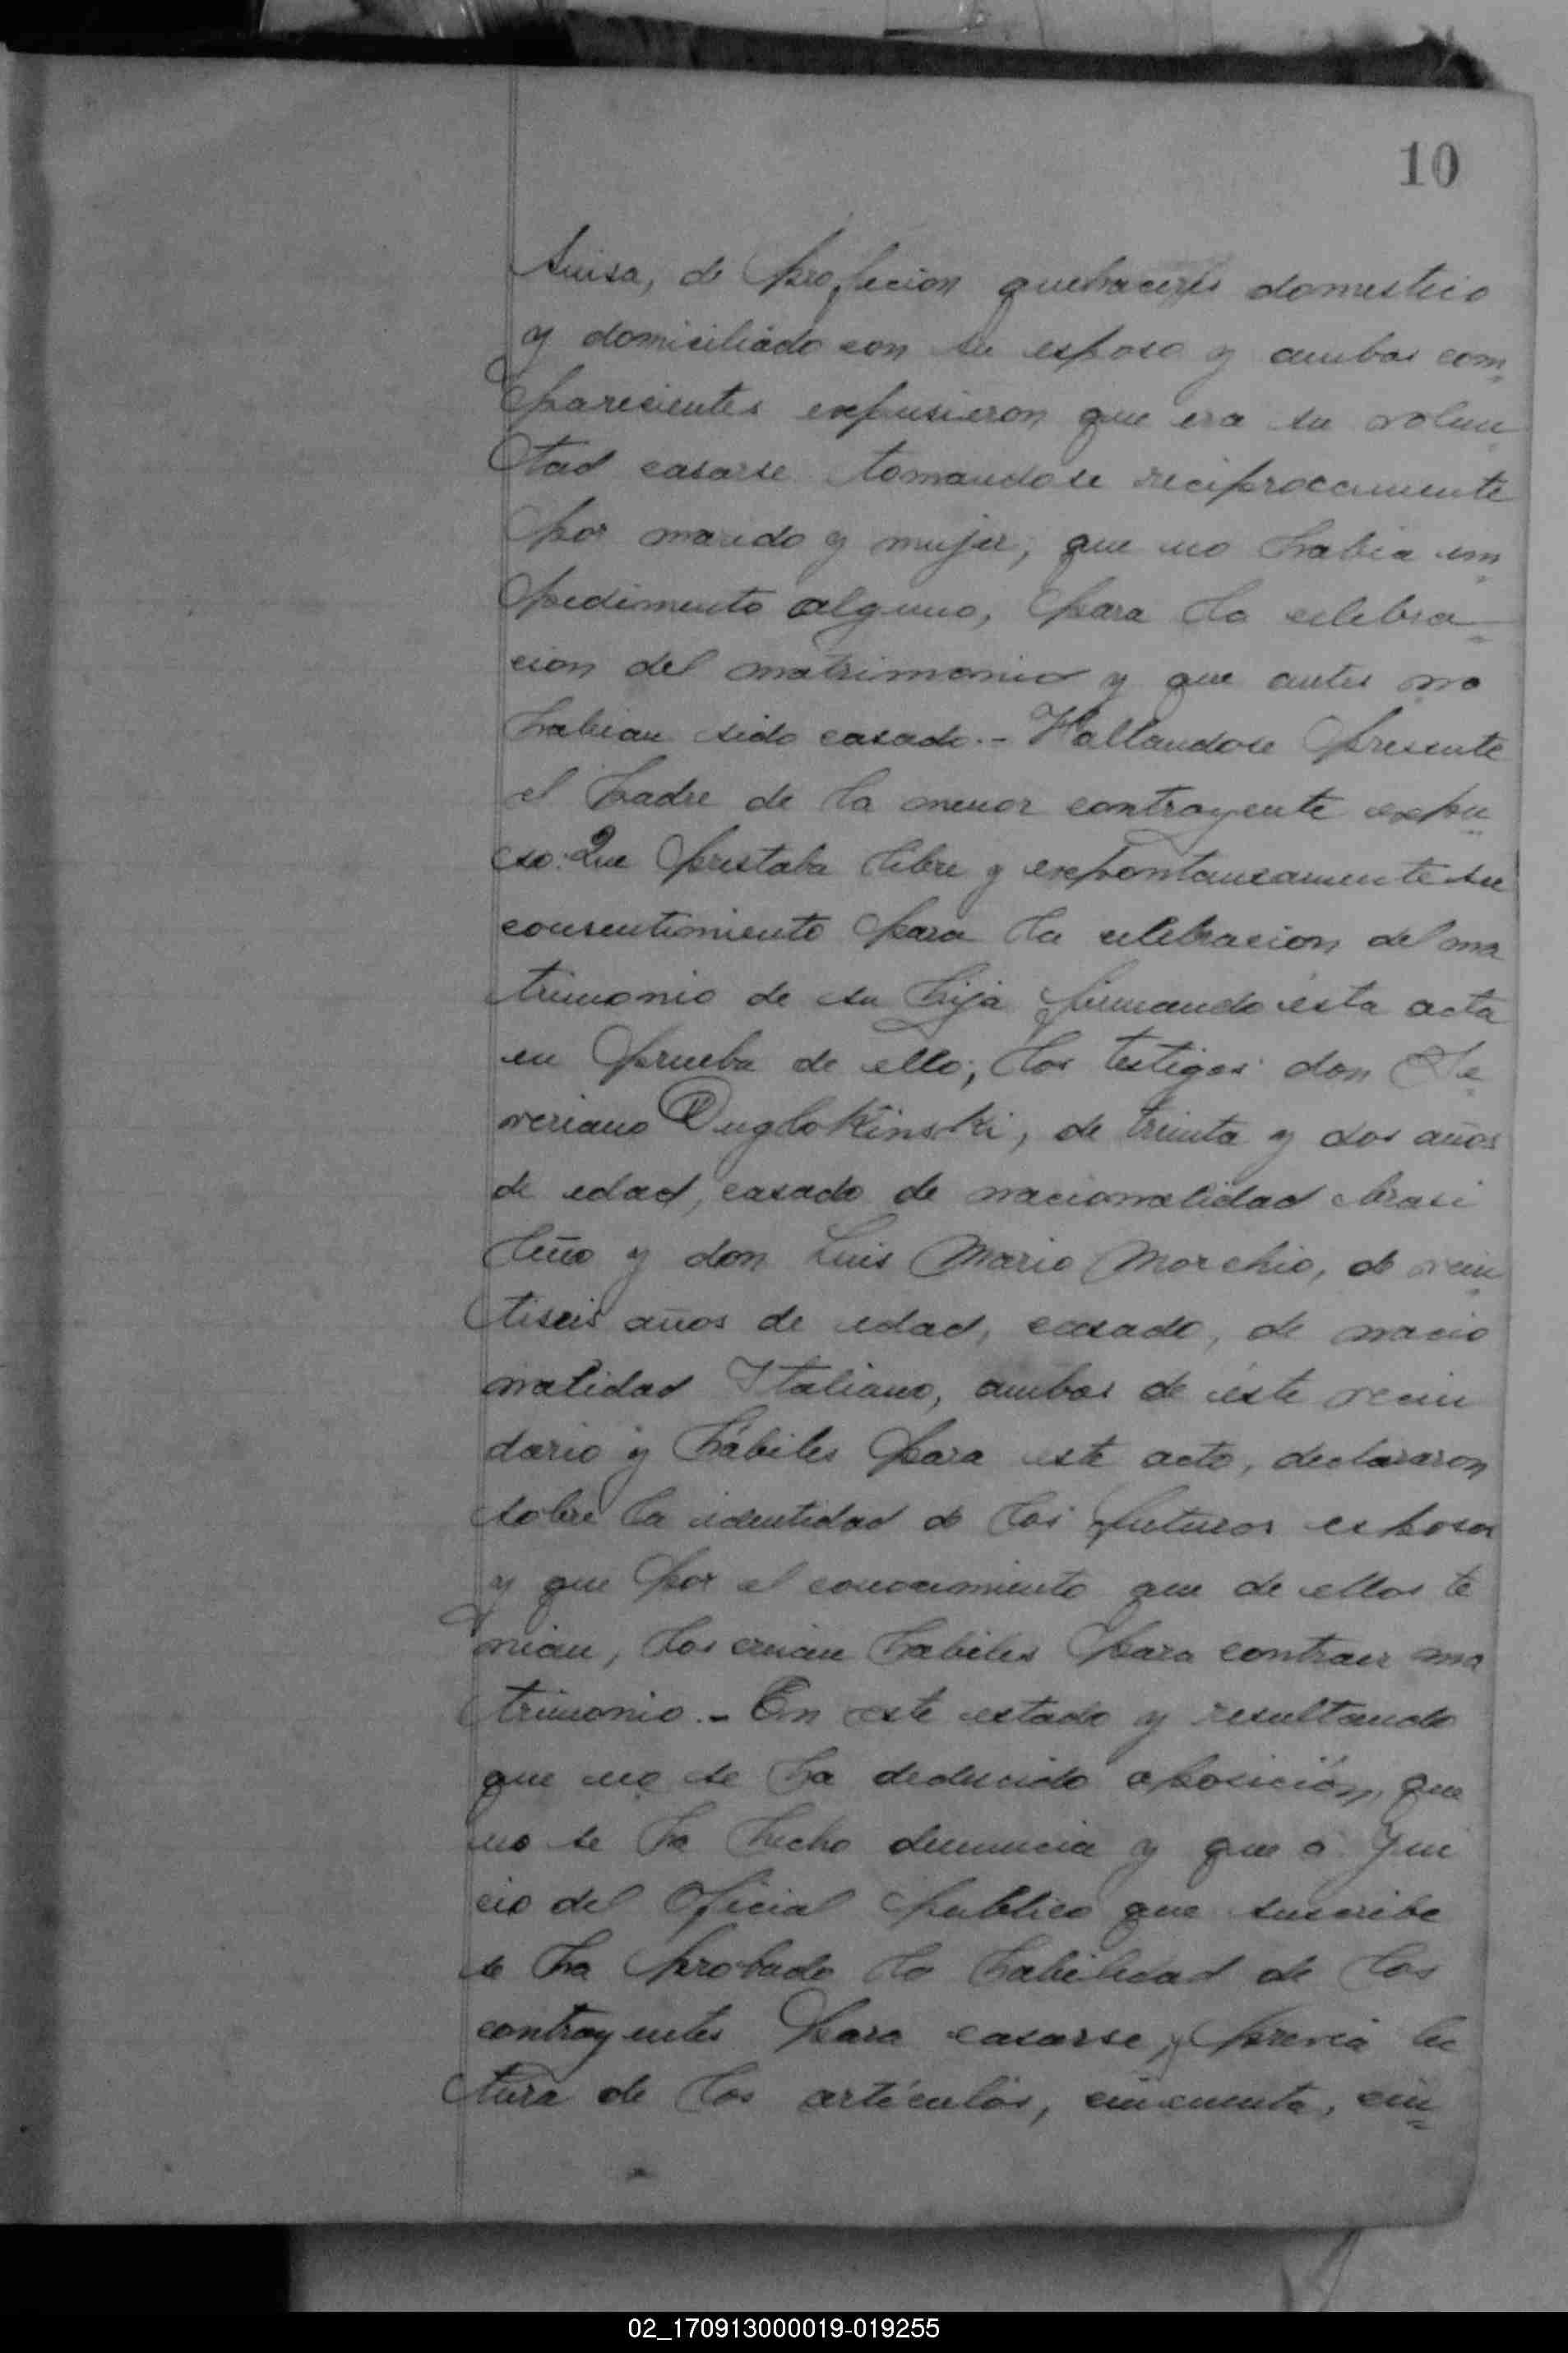 10
Suisa, de profecion quehaceres domestico
y domiciliádo con su esposo y ambos com=
parecientes expusieron que era su volun=
tad casarse tomandose reciprocamente
por marido y mujer, que no habia im=
pedimento alguno, para la celebra=
cion del matrimonio y que antes no
habian sido casado.- Hallandose presente
el padre de la menor contrayente expu=
so: Que prestaba libre y expontaneamente su
consentimiento para la celebracion del ma
trimonio de su hija firmando ésta acta
en prueba de ello; los testigos don Se=
veriano Duglokinski, de treinta y dos años
de edad, casado de nacionalidad brasi
leño y don Luis Mario Morchio, de vein=
tiseis años de edad, casado, de nacio
nalidad Italiano, ambos de éste vecin
dario y hábiles para este acto, declararon
sobre la identidad de los futuros esposos
y que por el conocimiento que de ellos te
nian, los creian habiles para contraer ma
trimonio.- En este estado y resultando
que no se ha deducido oposición, que
no se ha hecho denuncia y que a jui
cio del Oficial publico que suscribe
se ha probado la habilidad de los
contrayentes para casarse, y previa lec
tura de los artículos, cincuenta, cin=
02_170913000019-019255